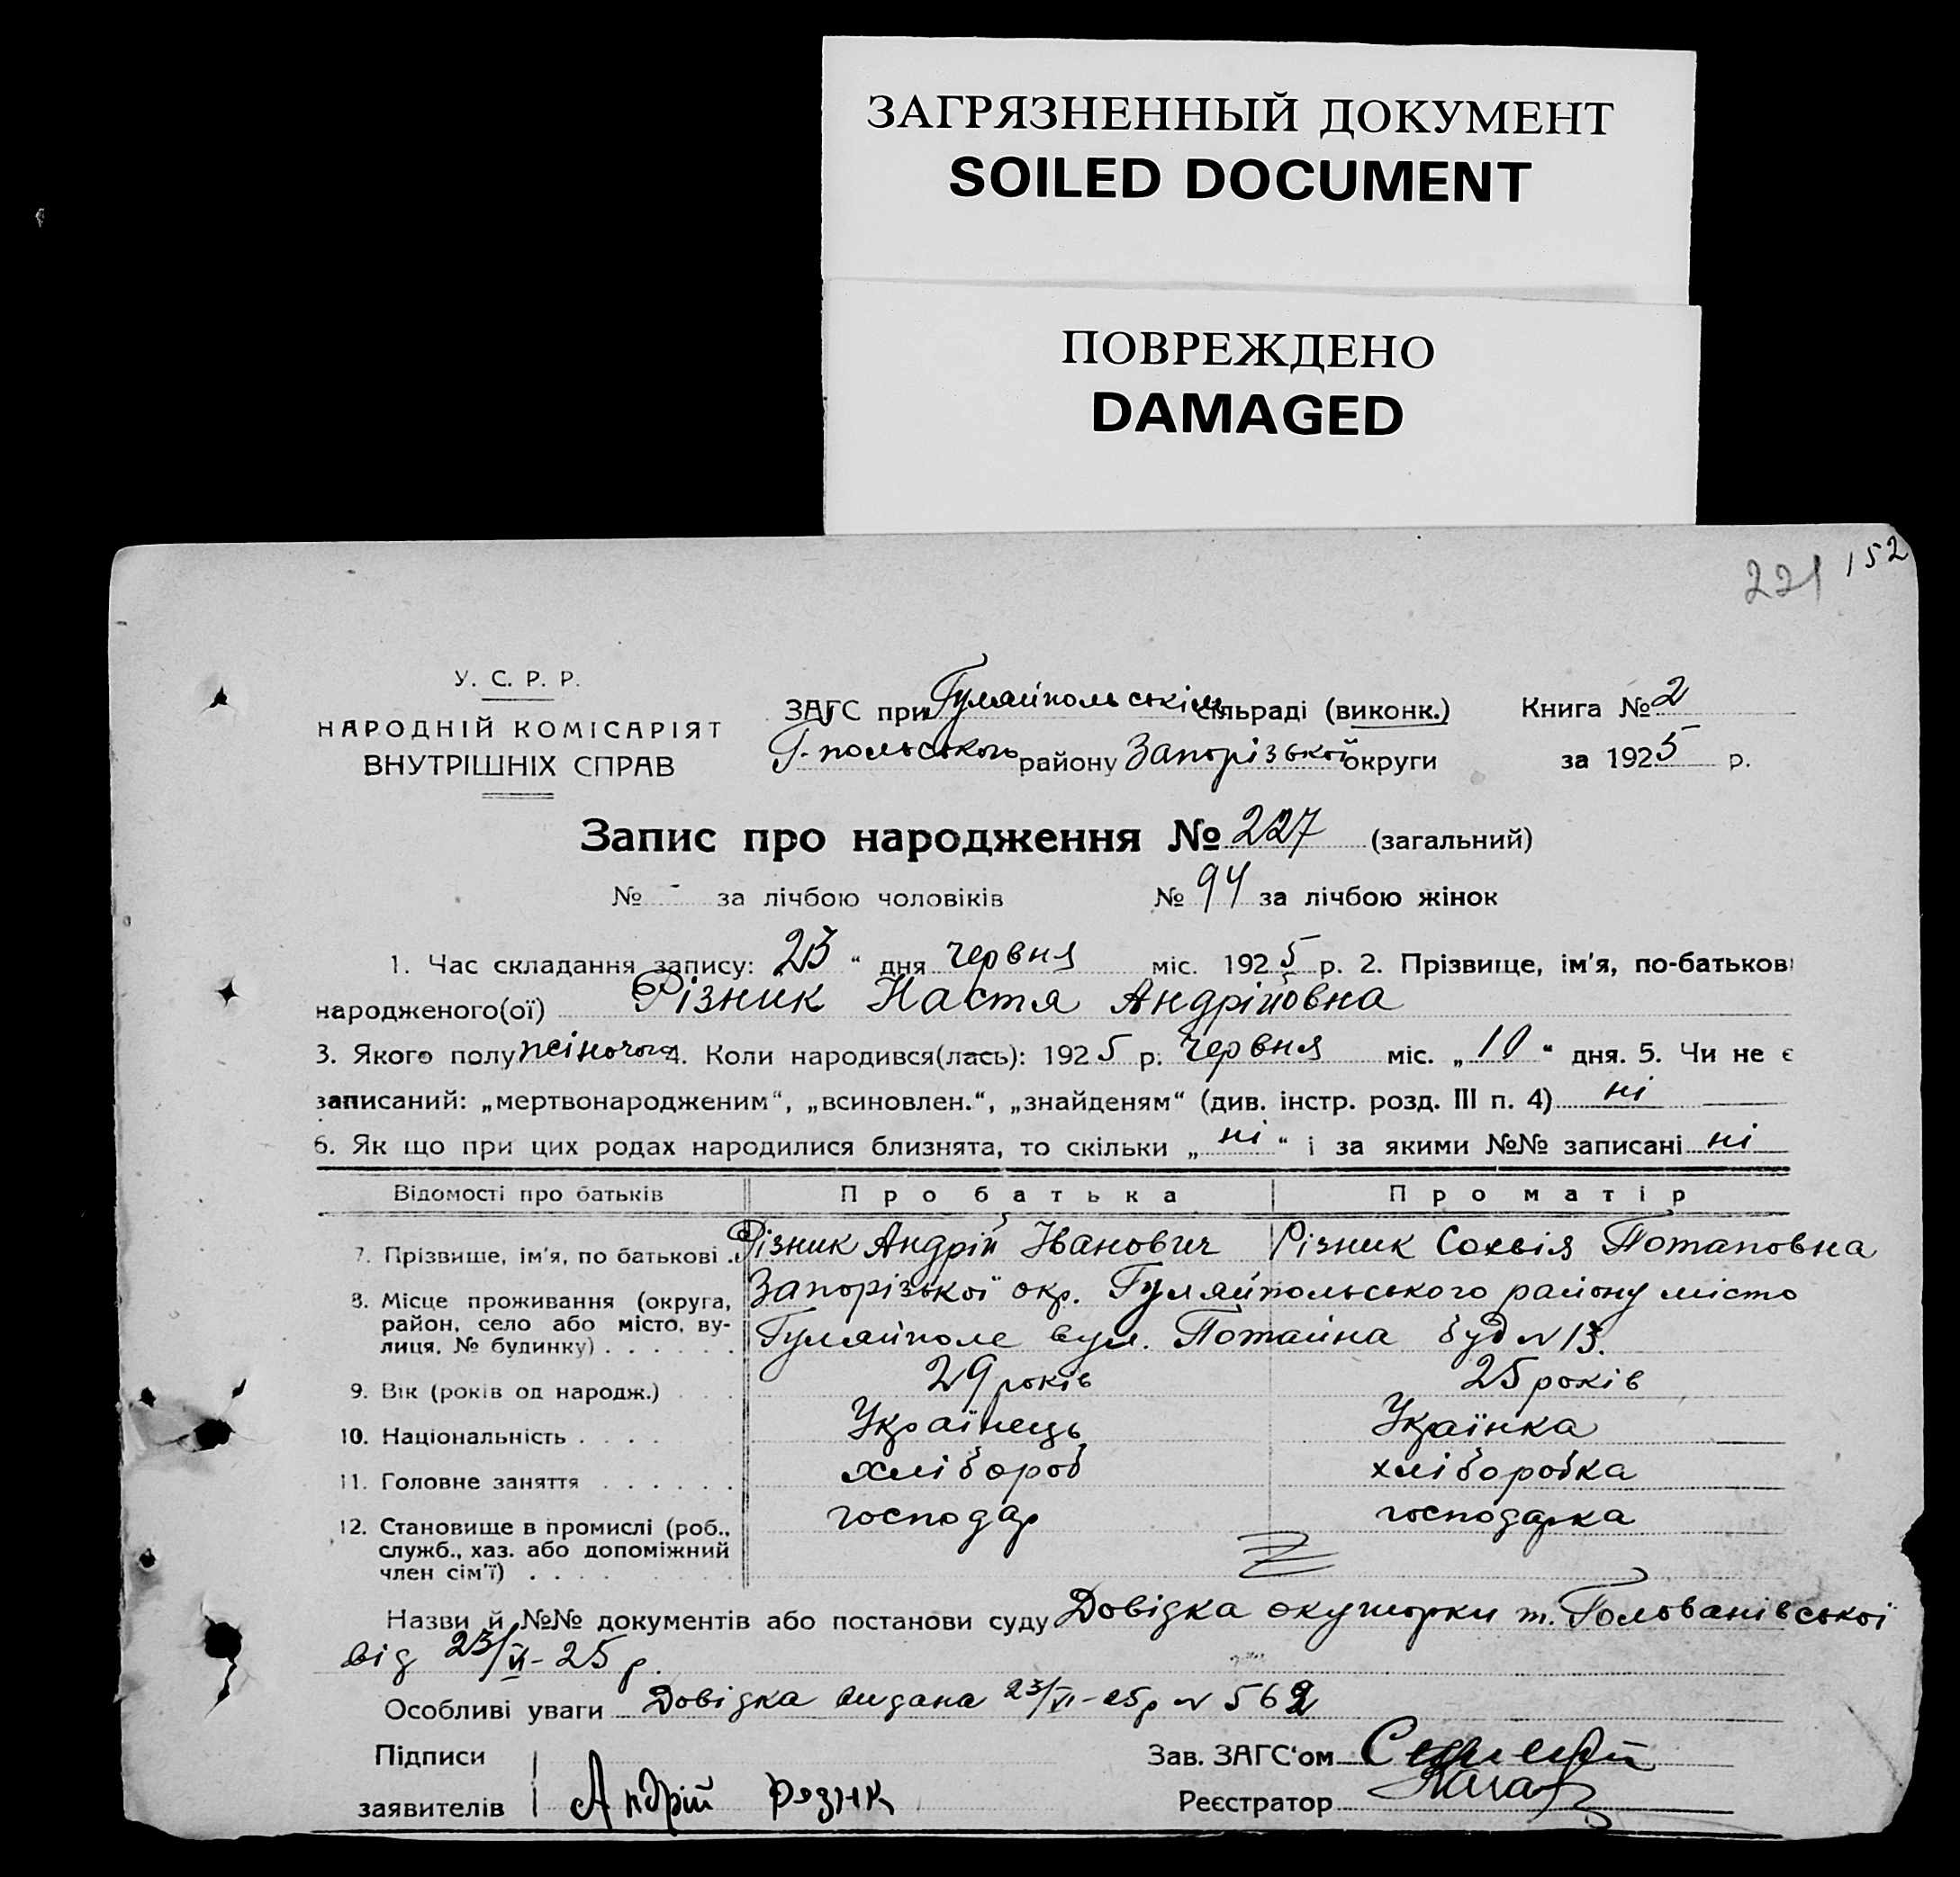 ЗАГРЯЗНЕННЫЙ ДОКУМЕНТ
SOILED DOCUMENT
ПОВРЕЖДЕНО
DAMAGED
221 152
У. С. Р. Р.
НАРОДНІЙ КОМІСАРІЯТ
ВНУТРІШНІХ СПРАВ
ЗАГС при Гуляйпольскім сільраді (виконк.) Книга № 2
Г-польського району Запорізької округи за 1925 р.
Запис про народження № 227 (загальний)
№ - за лічбою чоловіків № 94 за лічбою жінок
1. Час складання запису: „23“ дня червня міс. 1925 р. 2. Прізвище, ім'я, по-батькові
народженого(ої) Різник Настя Андрійовна
3. Якого полу жіночого 4. Коли народився(лась): 1925 р. червня міс. „10“ дня. 5. Чи не є
записаний: „мертвонародженим“, „всиновлен.“, „знайденям“ (див. інстр. розд. III п. 4) ні
6. Як що при цих родах народилися близнята, то скільки „ні“ і за якими №№ записані ні
Відомості про батьків Про батька Про матір
7. Прізвище, ім'я, по батькові Різник Андрій Іванович Різник Сохвія Потаповна
8. Місце проживання (округа, район, село або місто, вулиця, № будинку) Запорізької окр. Гуляйпольського району місто
Гуляйполе вул. Потайна буд № 13.
9. Вік (років од народж.) 29 років 25 років
10. Національність Українець Українка
11. Головне заняття хлібороб хліборобка
12. Становище в промислі (роб., служб., хаз. або допоміжний член сім'ї) господар господарка
Назви й №№ документів або постанови суду Довідка окушорки т. Голованівської
від 23/VI-25 р.
Особливі уваги Довідка видана 23/VI-25р № 562
Підписи
заявителів Андрій Рэзнк
Зав. ЗАГС'ом
Реєстратор